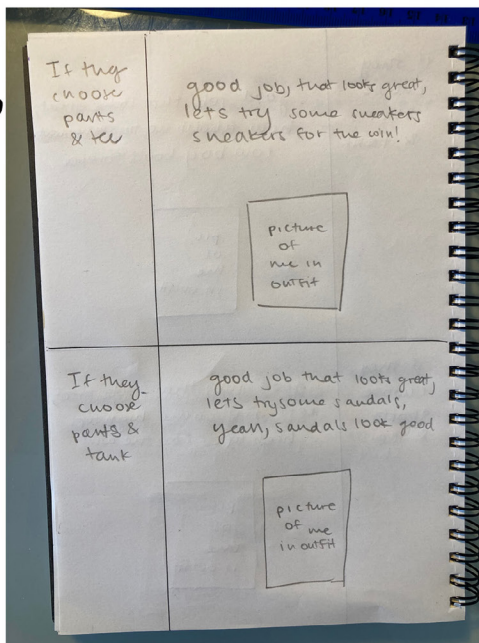 If they
choose
pants
& tee
good job, that looks great,
lets try some sneakers
sneakers for the win!
picture
of
me in
outfit
If they
choose
pants &
tank
good job that looks great,
lets try some sandals,
yeah, sandals look good
picture
of me
in outfit